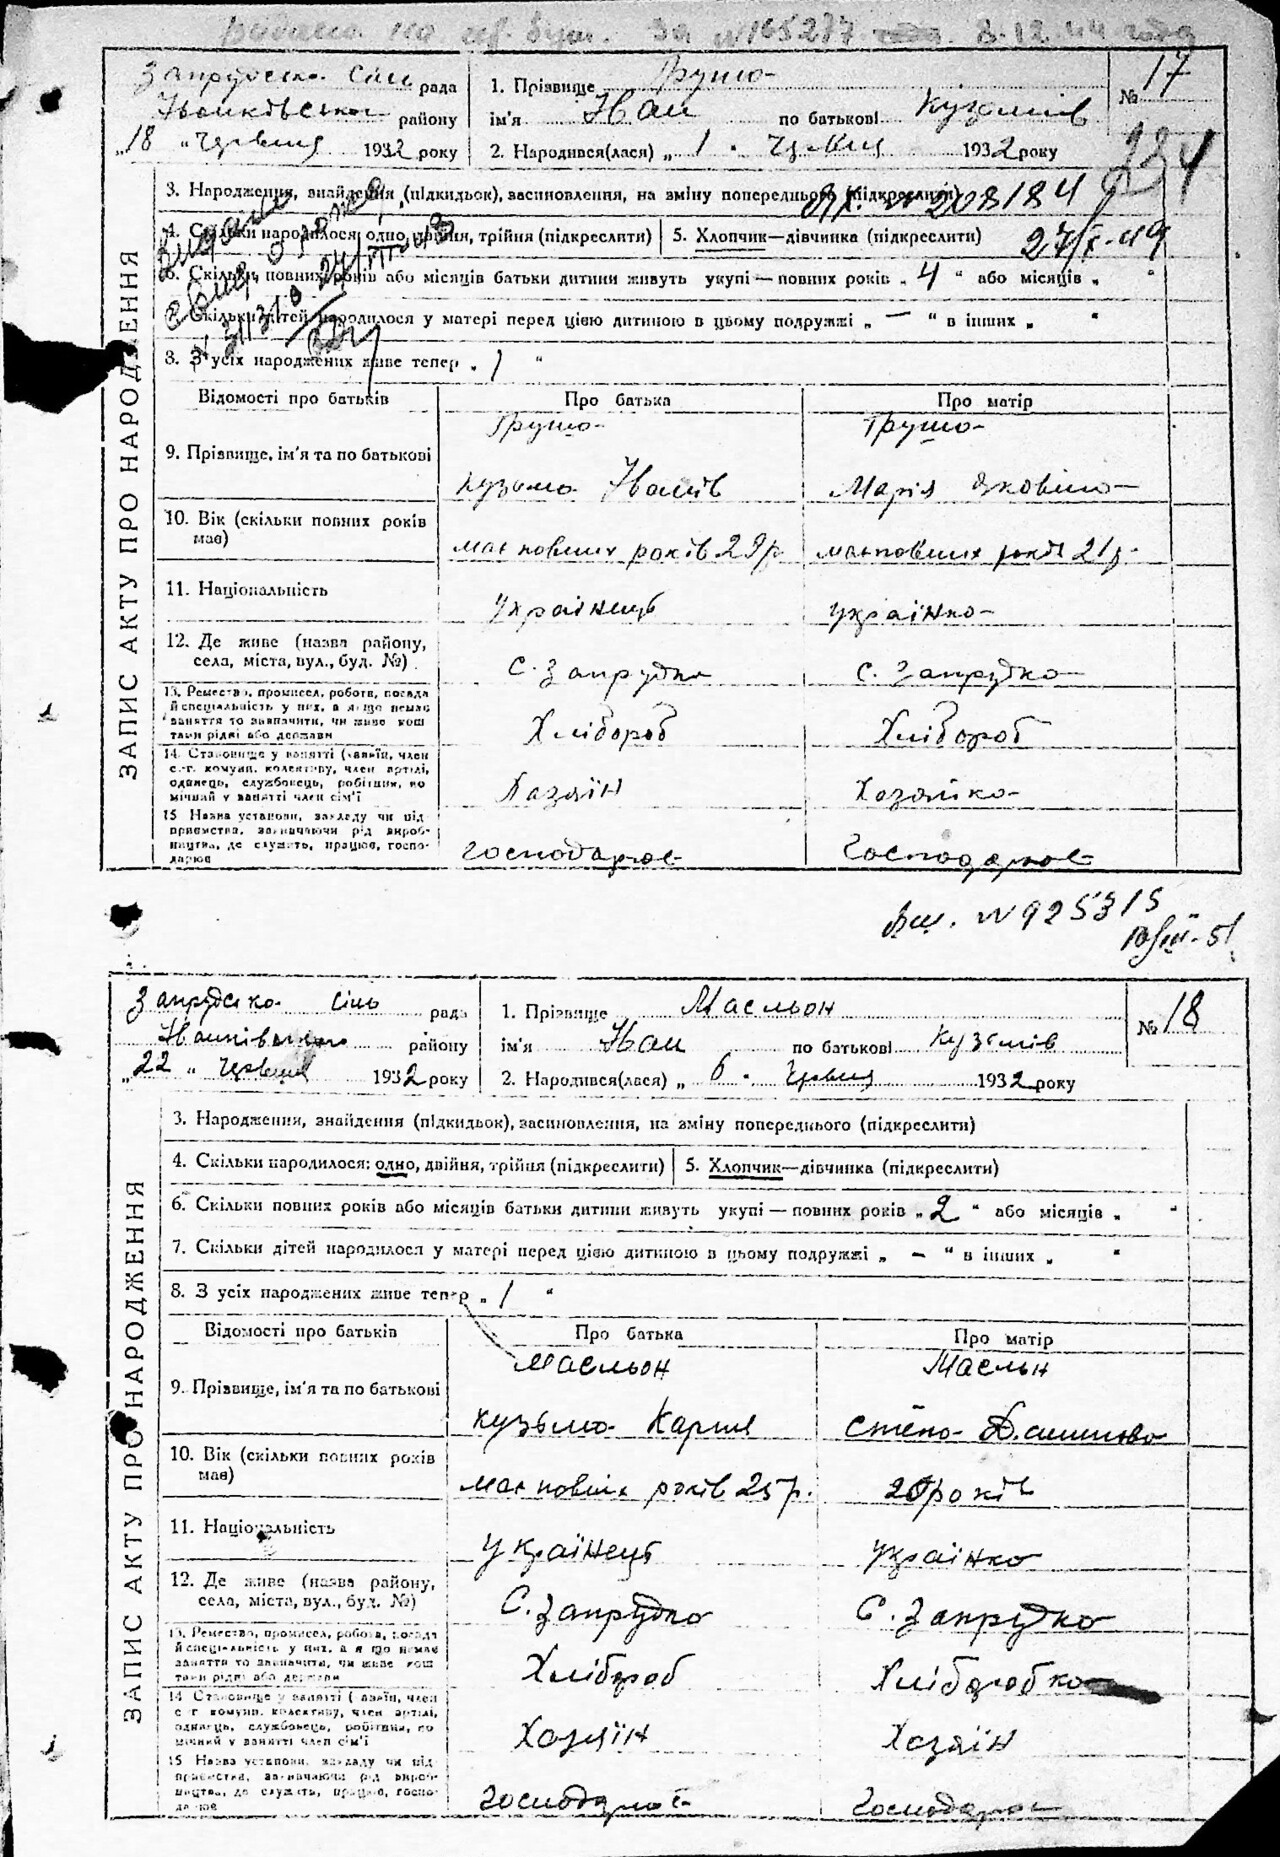 за №165277 8.12.44 года
Запрудсько сіль рада
Іванківського району
„18 „ червня 1932 року
1. Прізвище Грушо
ім'я Іван по батькові Кузьмів
2. Народився(лася) „ 1 . червня 1932 року
№ 17
3. Народження, знайдення (підкидьок), засиновлення, на зміну попереднього (підкреслити)
№ 208184
4. Скільки народилося: одно, двійня, трійня (підкреслити) 5. Хлопчик—дівчинка (підкреслити)
27/X-49
6. Скільки повних років або місяців батьки дитини живуть укупі — повних років „ 4 “ або місяців „ “
7. Скільки дітей народилося у матері перед цією дитиною в цьому подружжі „ — “ в інших „ “
8. З усіх народжених живе тепер „ 1 “
ЗАПИС АКТУ ПРО НАРОДЖЕННЯ
Відомості про батьків Про батька Про матір
Грушо Грушо
9. Прізвище, ім'я та по батькові
Кузьмо Іванів Марія Яковіно
10. Вік (скільки повних років має)
має повних років 29 р має повних років 21 р.
11. Національність
українець українко
12. Де живе (назва району, села, міста, вул., буд. №)
С. Запрудко С. Запрудко
13. Ремество, промисел, робота, посада й спеціяльність у них, а якщо немає заняття то зазначити, чи живе кош тами рідні або держави
Хлібороб Хлібороб
14. Становище у занятті (хазяїн, член с.-г. комуни, колективу, член артілі, одинець, службовець, робітник, по мічний у занятті член сім'ї
Хазяїн Хазяйко
15 Назва установи, закладу чи під- приємства, зазначаючи рід вироб- ництва, де служить, працює, госпо- дарює
господарює Господарює
№ 925315
Запрудсько сіль рада
Іванківського району
„22 „ червня 1932 року
1. Прізвище Масльон
ім'я Іван по батькові Кузьмів
2. Народився(лася) „ 6 . червня 1932 року
№ 18
3. Народження, знайдення (підкидьок), засиновлення, на зміну попереднього (підкреслити)
4. Скільки народилося: одно, двійня, трійня (підкреслити) 5. Хлопчик—дівчинка (підкреслити)
6. Скільки повних років або місяців батьки дитини живуть укупі — повних років „ 2 “ або місяців „ “
7. Скільки дітей народилося у матері перед цією дитиною в цьому подружжі „ — “ в інших „ “
8. З усіх народжених живе тепер „ 1 “
ЗАПИС АКТУ ПРО НАРОДЖЕННЯ
Відомості про батьків Про батька Про матір
Масльон Масльн
9. Прізвище, ім'я та по батькові
Кузьмо Карпів
10. Вік (скільки повних років має)
має повних років 25 р. років
11. Національність
українець українко
12. Де живе (назва району, села, міста, вул., буд. №)
С. Запрудко С. Запрудко
13. Ремество, промисел, робота, посада й спеціяльність у них, а якщо немає заняття то зазначити, чи живе кош тами рідні або держави
Хлібороб Хліборобко
14 Становище у занятті (хазяїн, член с г комуни, колективу, член артілі, одинець, службовець, робітник, по мічний у занятті член сім'ї
Хазяїн Хазяїн
15 Назва установи, закладу чи під- приємства, зазначаючи рід вироб- ництва, де служить, працює, госпо- дарює
Господарює Господарює